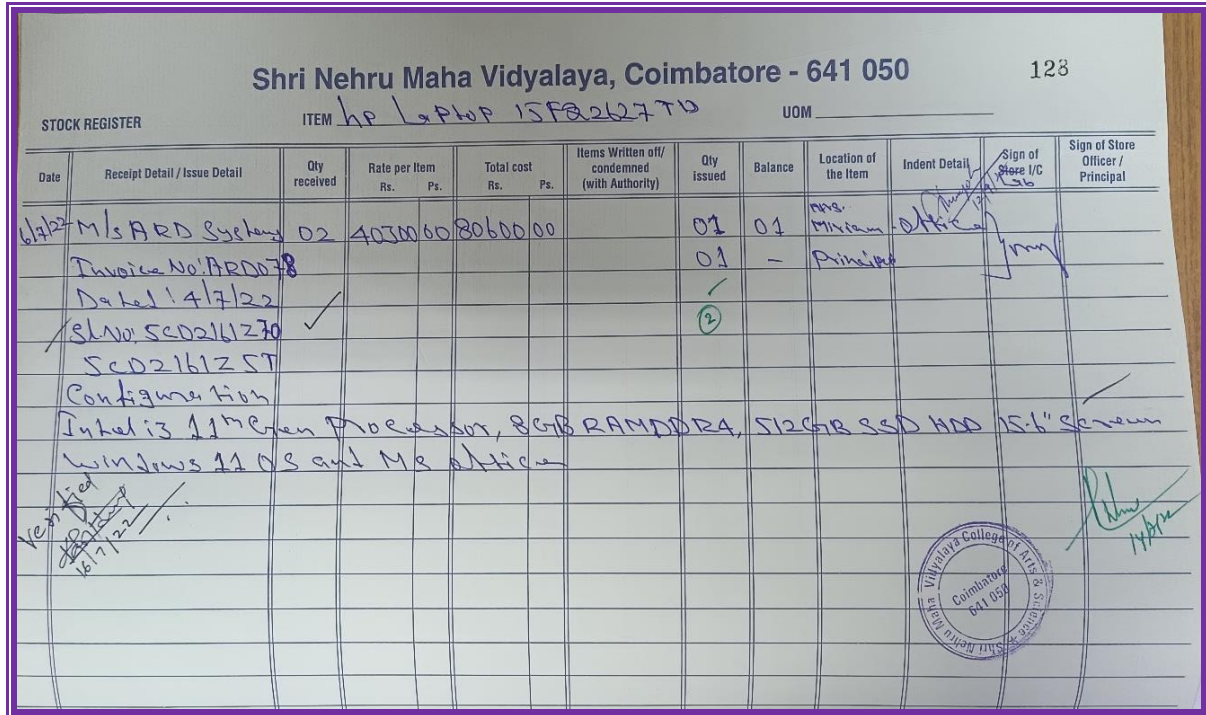 Shri Nehru Maha Vidyalaya, Coimbatore - 641 050
128
STOCK REGISTER ITEM hp Laptop 15FQ2627TU UOM
Date Receipt Detail / Issue Detail Qty received Rate per Item Rs. Ps. Total cost Rs. Ps. Items Written off/ condemned (with Authority) Qty issued Balance Location of the Item Indent Detail Sign of Store I/C Lab Sign of Store Officer / Principal
6/7/22 M/s ARD Systems 02 40300 00 80600 00 01 01 Mrs. Miriam Office
Invoice No: ARD078 01 - Principal
Dated: 4/7/22
Sl.No: 5CD2161Z70 2
5CD2161Z5T
Configuration
Intel i3 11th Gen Processor, 8GB RAM DDR4, 512GB SSD HDD 15.6" Screen
Windows 11 OS and MS Office
Verified
16/7/22
Shri Nehru Maha Vidyalaya College of Arts & Science
Coimbatore
641 050